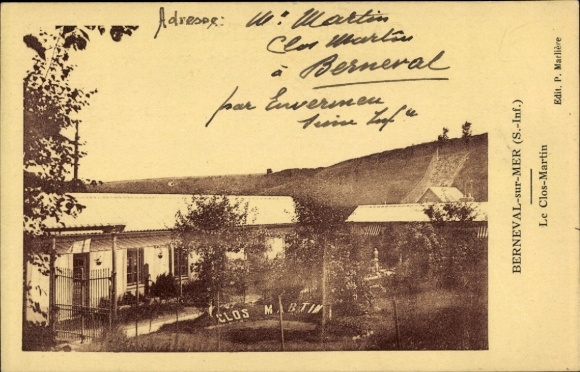 Adresse: Mr Martin
Clos Martin
à Berneval
par Envermeu
Seine Infre
CLOS MARTIN
BERNEVAL-sur-MER (S.-Inf.)
Le Clos-Martin
Edit. P. Marlière